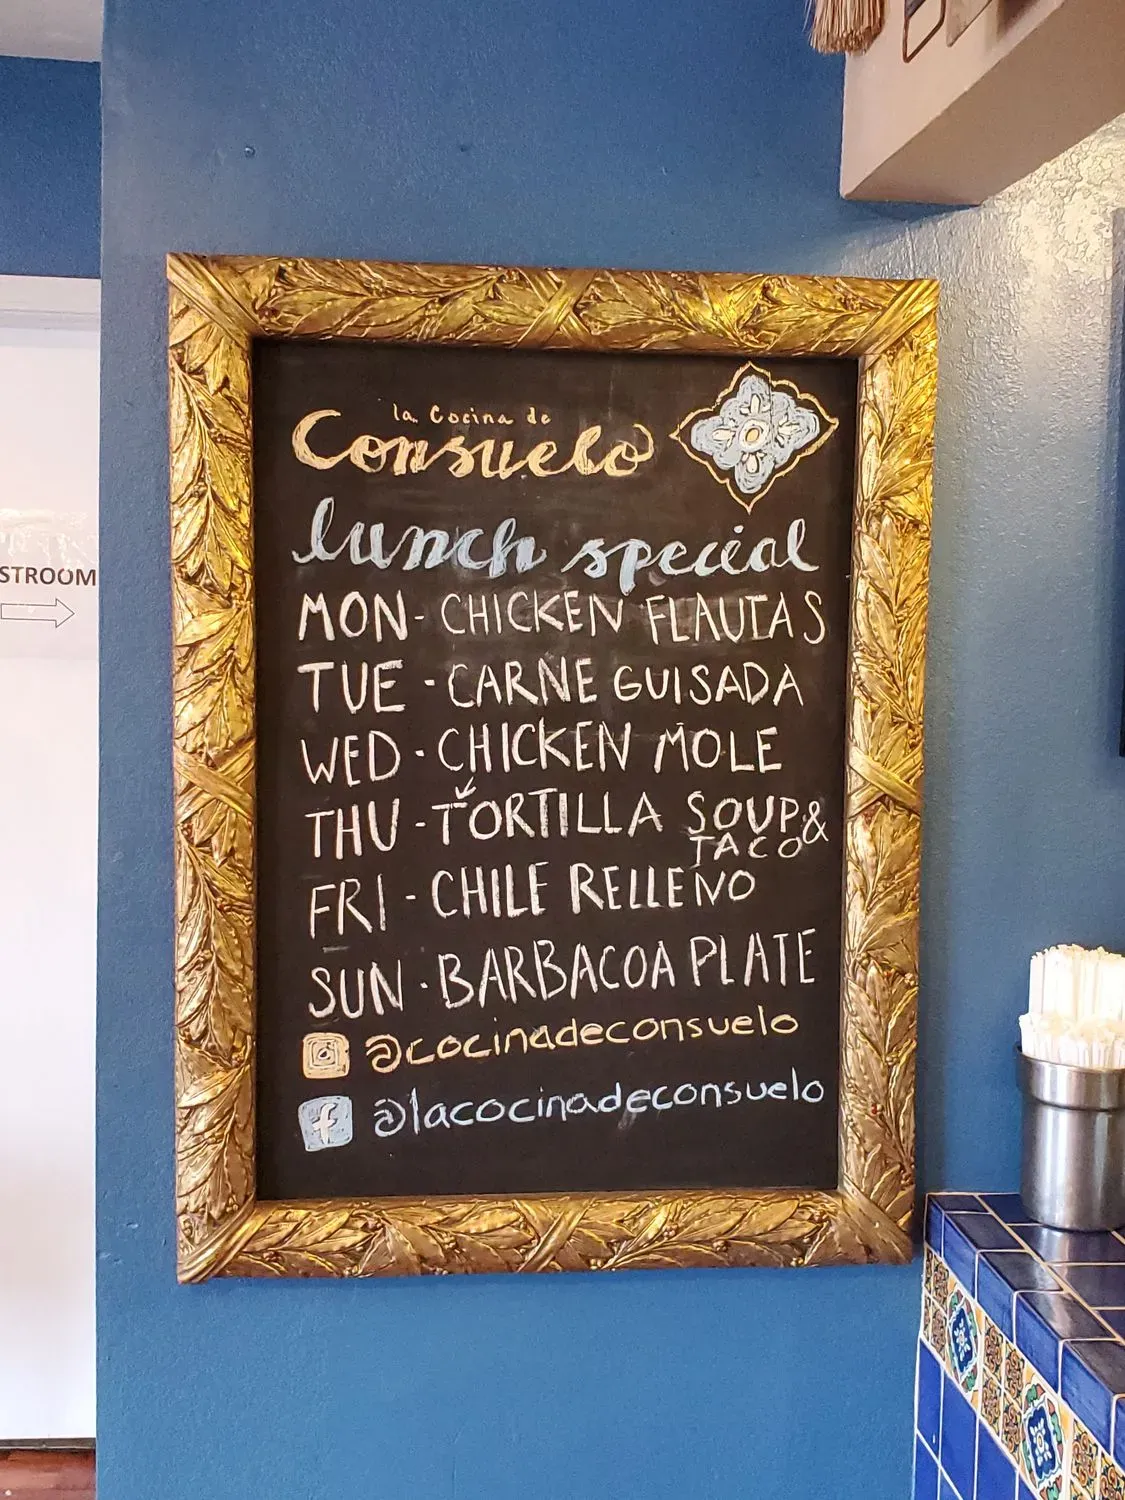 la Cocina de
Consuelo
lunch special
MON- CHICKEN FLAUTAS
TUE - CARNE GUISADA
WED - CHICKEN MOLE
THU - TORTILLA SOUP &
TACO
FRI - CHILE RELLENO
SUN - BARBACOA PLATE
@cocinadeconsuelo
f @lacocinadeconsuelo
STROOM